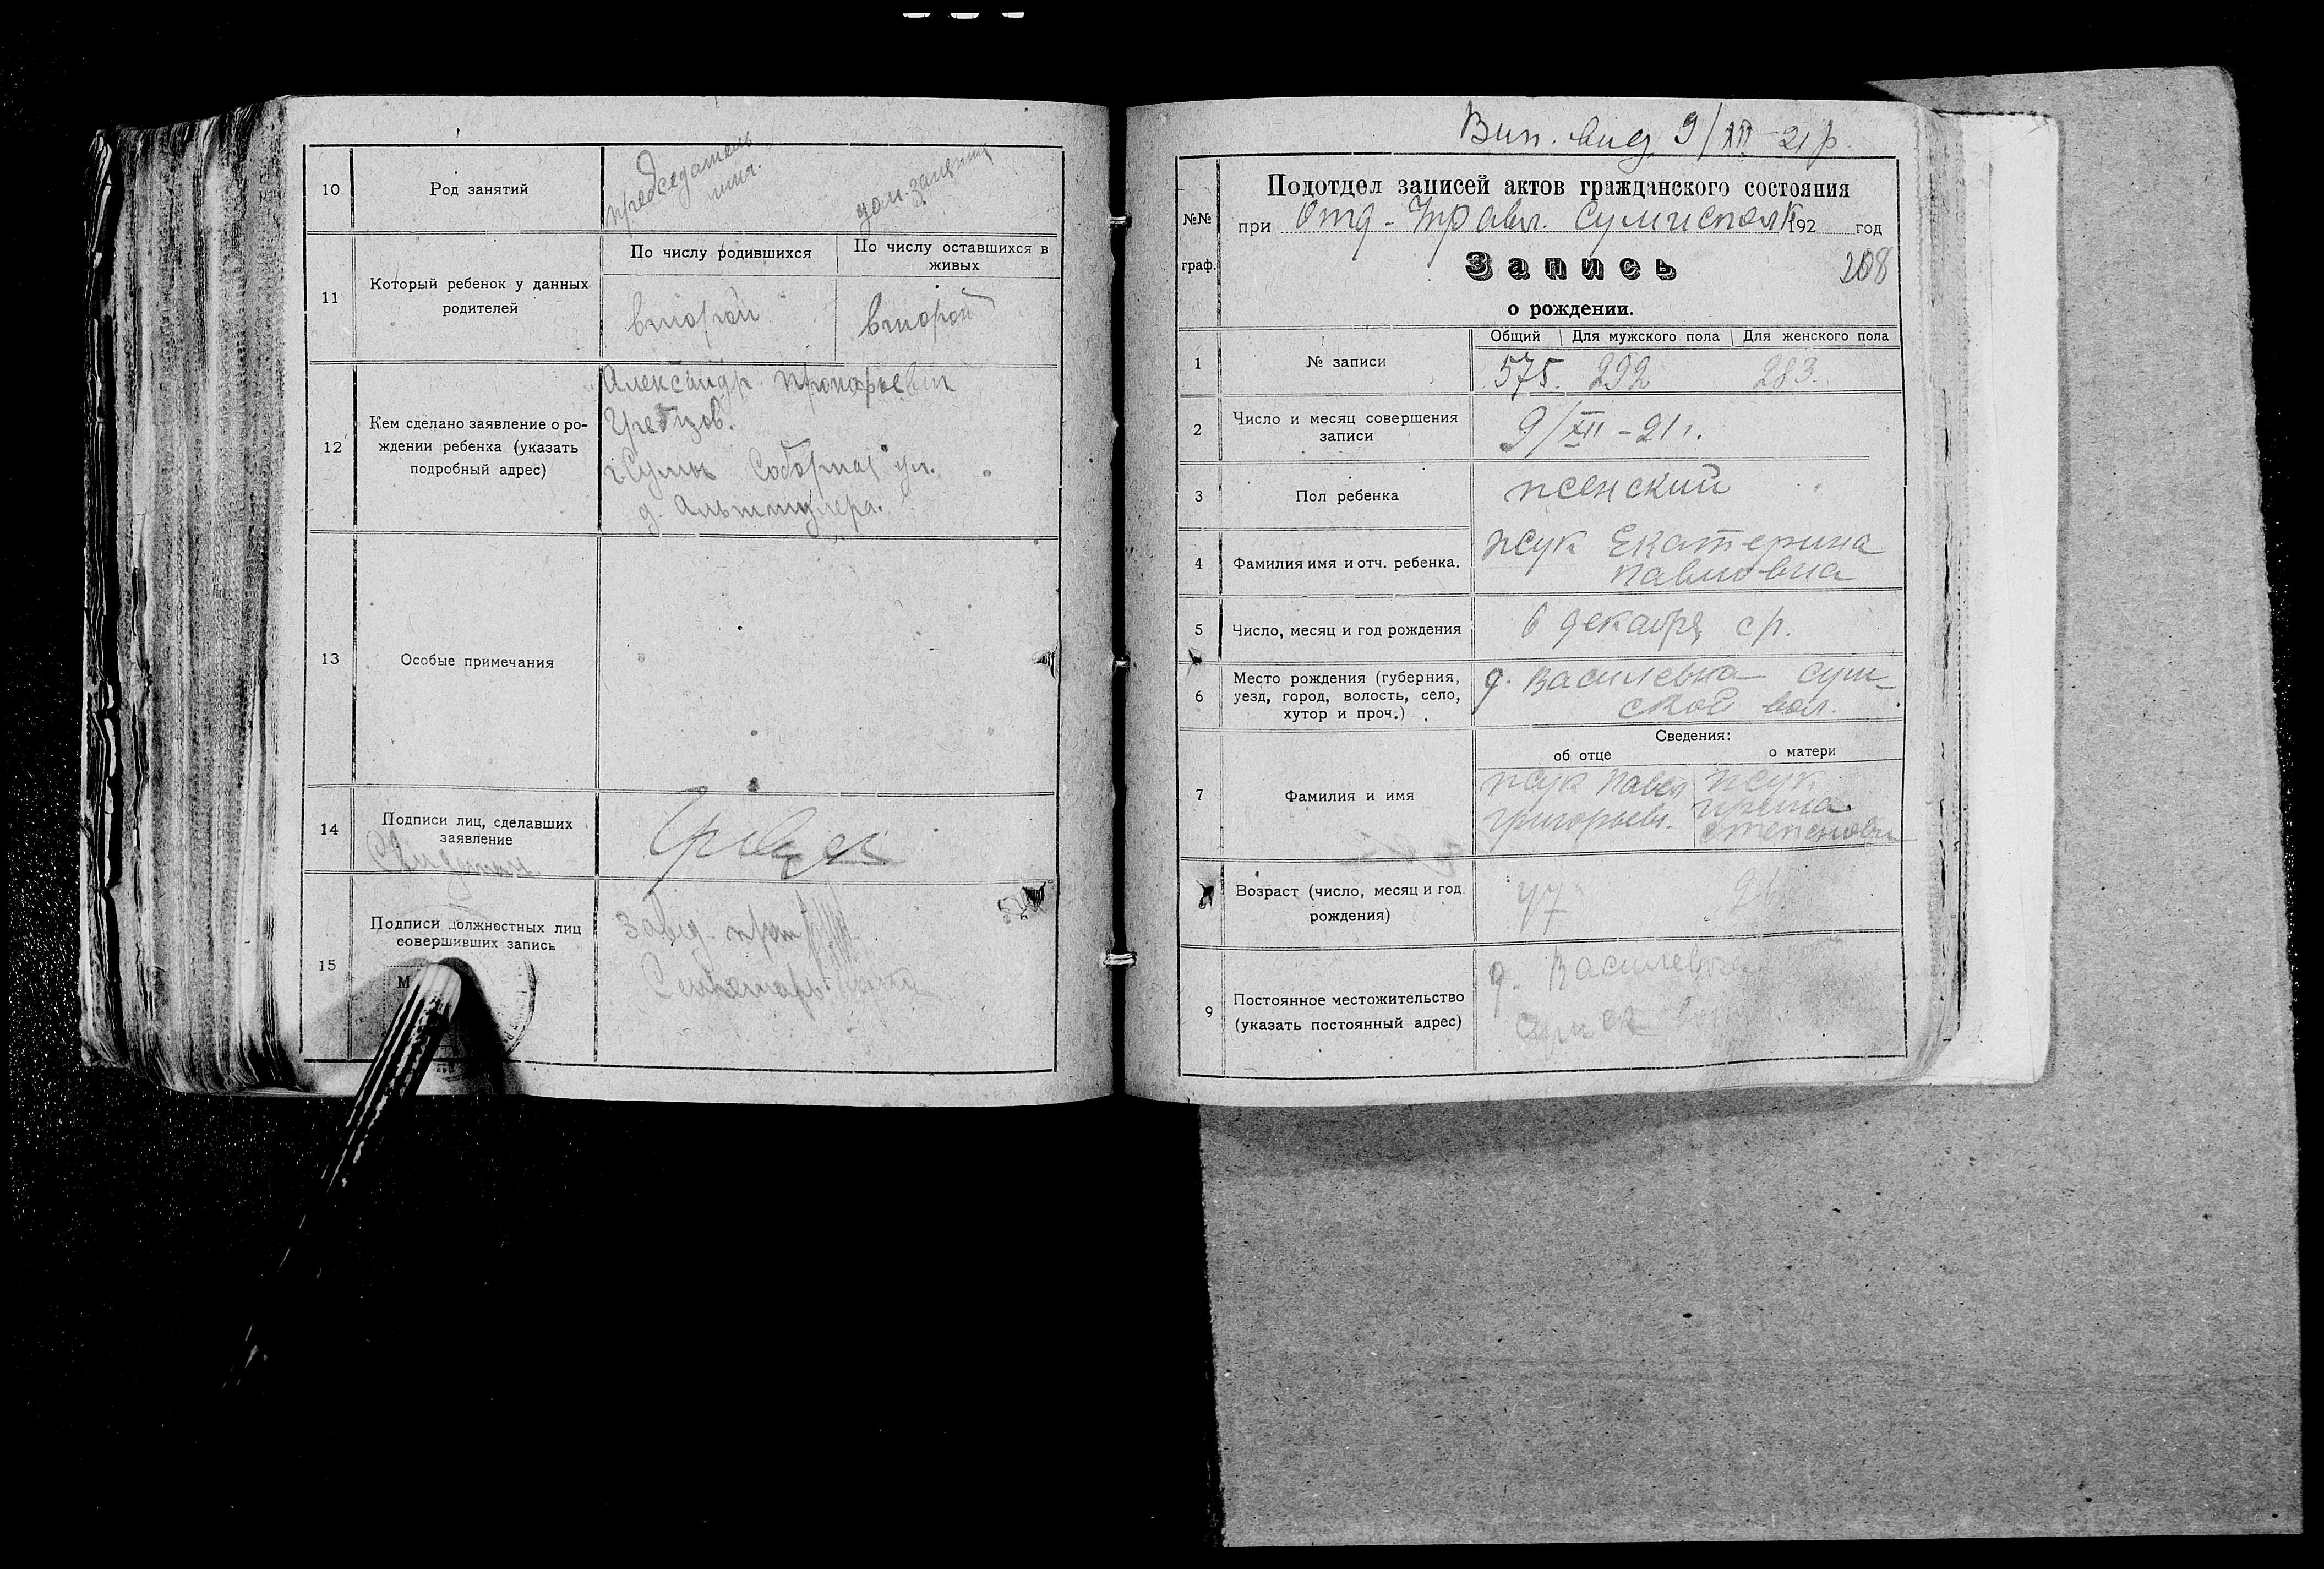 10
Род занятий
председатель
дом. занятия
11
Который ребенок у данных
родителей
По числу родившихся
По числу оставшихся в
живых
второй
второй
12
Кем сделано заявление о ро-
ждении ребенка (указать
подробный адрес)
Александр Прокофьевич
г. Сумы Соборная ул.
д. Альтшулера.
13
Особые примечания
14
Подписи лиц, сделавших
заявление
15
Подписи должностных лиц
совершивших запись
М
Завед.
Секретарь
Вип. вид 9/XII-21 р.
№№
граф.
Подотдел записей актов гражданского состояния
при Отд. Управл. Сумисполк 192 год
Запись
208
о рождении.
Общий
Для мужского пола
Для женского пола
1
№ записи
575. 292 283.
2
Число и месяц совершения
записи
9/XII-21 г.
3
Пол ребенка
женский
4
Фамилия имя и отч. ребенка.
Жук Екатерина
Павловна
5
Число, месяц и год рождения
6 декабря с/г.
6
Место рождения (губерния,
уезд, город, волость, село,
хутор и проч.)
д. Василевка Сум
ской вол.
Сведения:
об отце
о матери
7
Фамилия и имя
Жук Павел
Григорьев.
Жук
Степановна
Возраст (число, месяц и год
рождения)
47
9
Постоянное местожительство
(указать постоянный адрес)
д. Василевка
Сумск